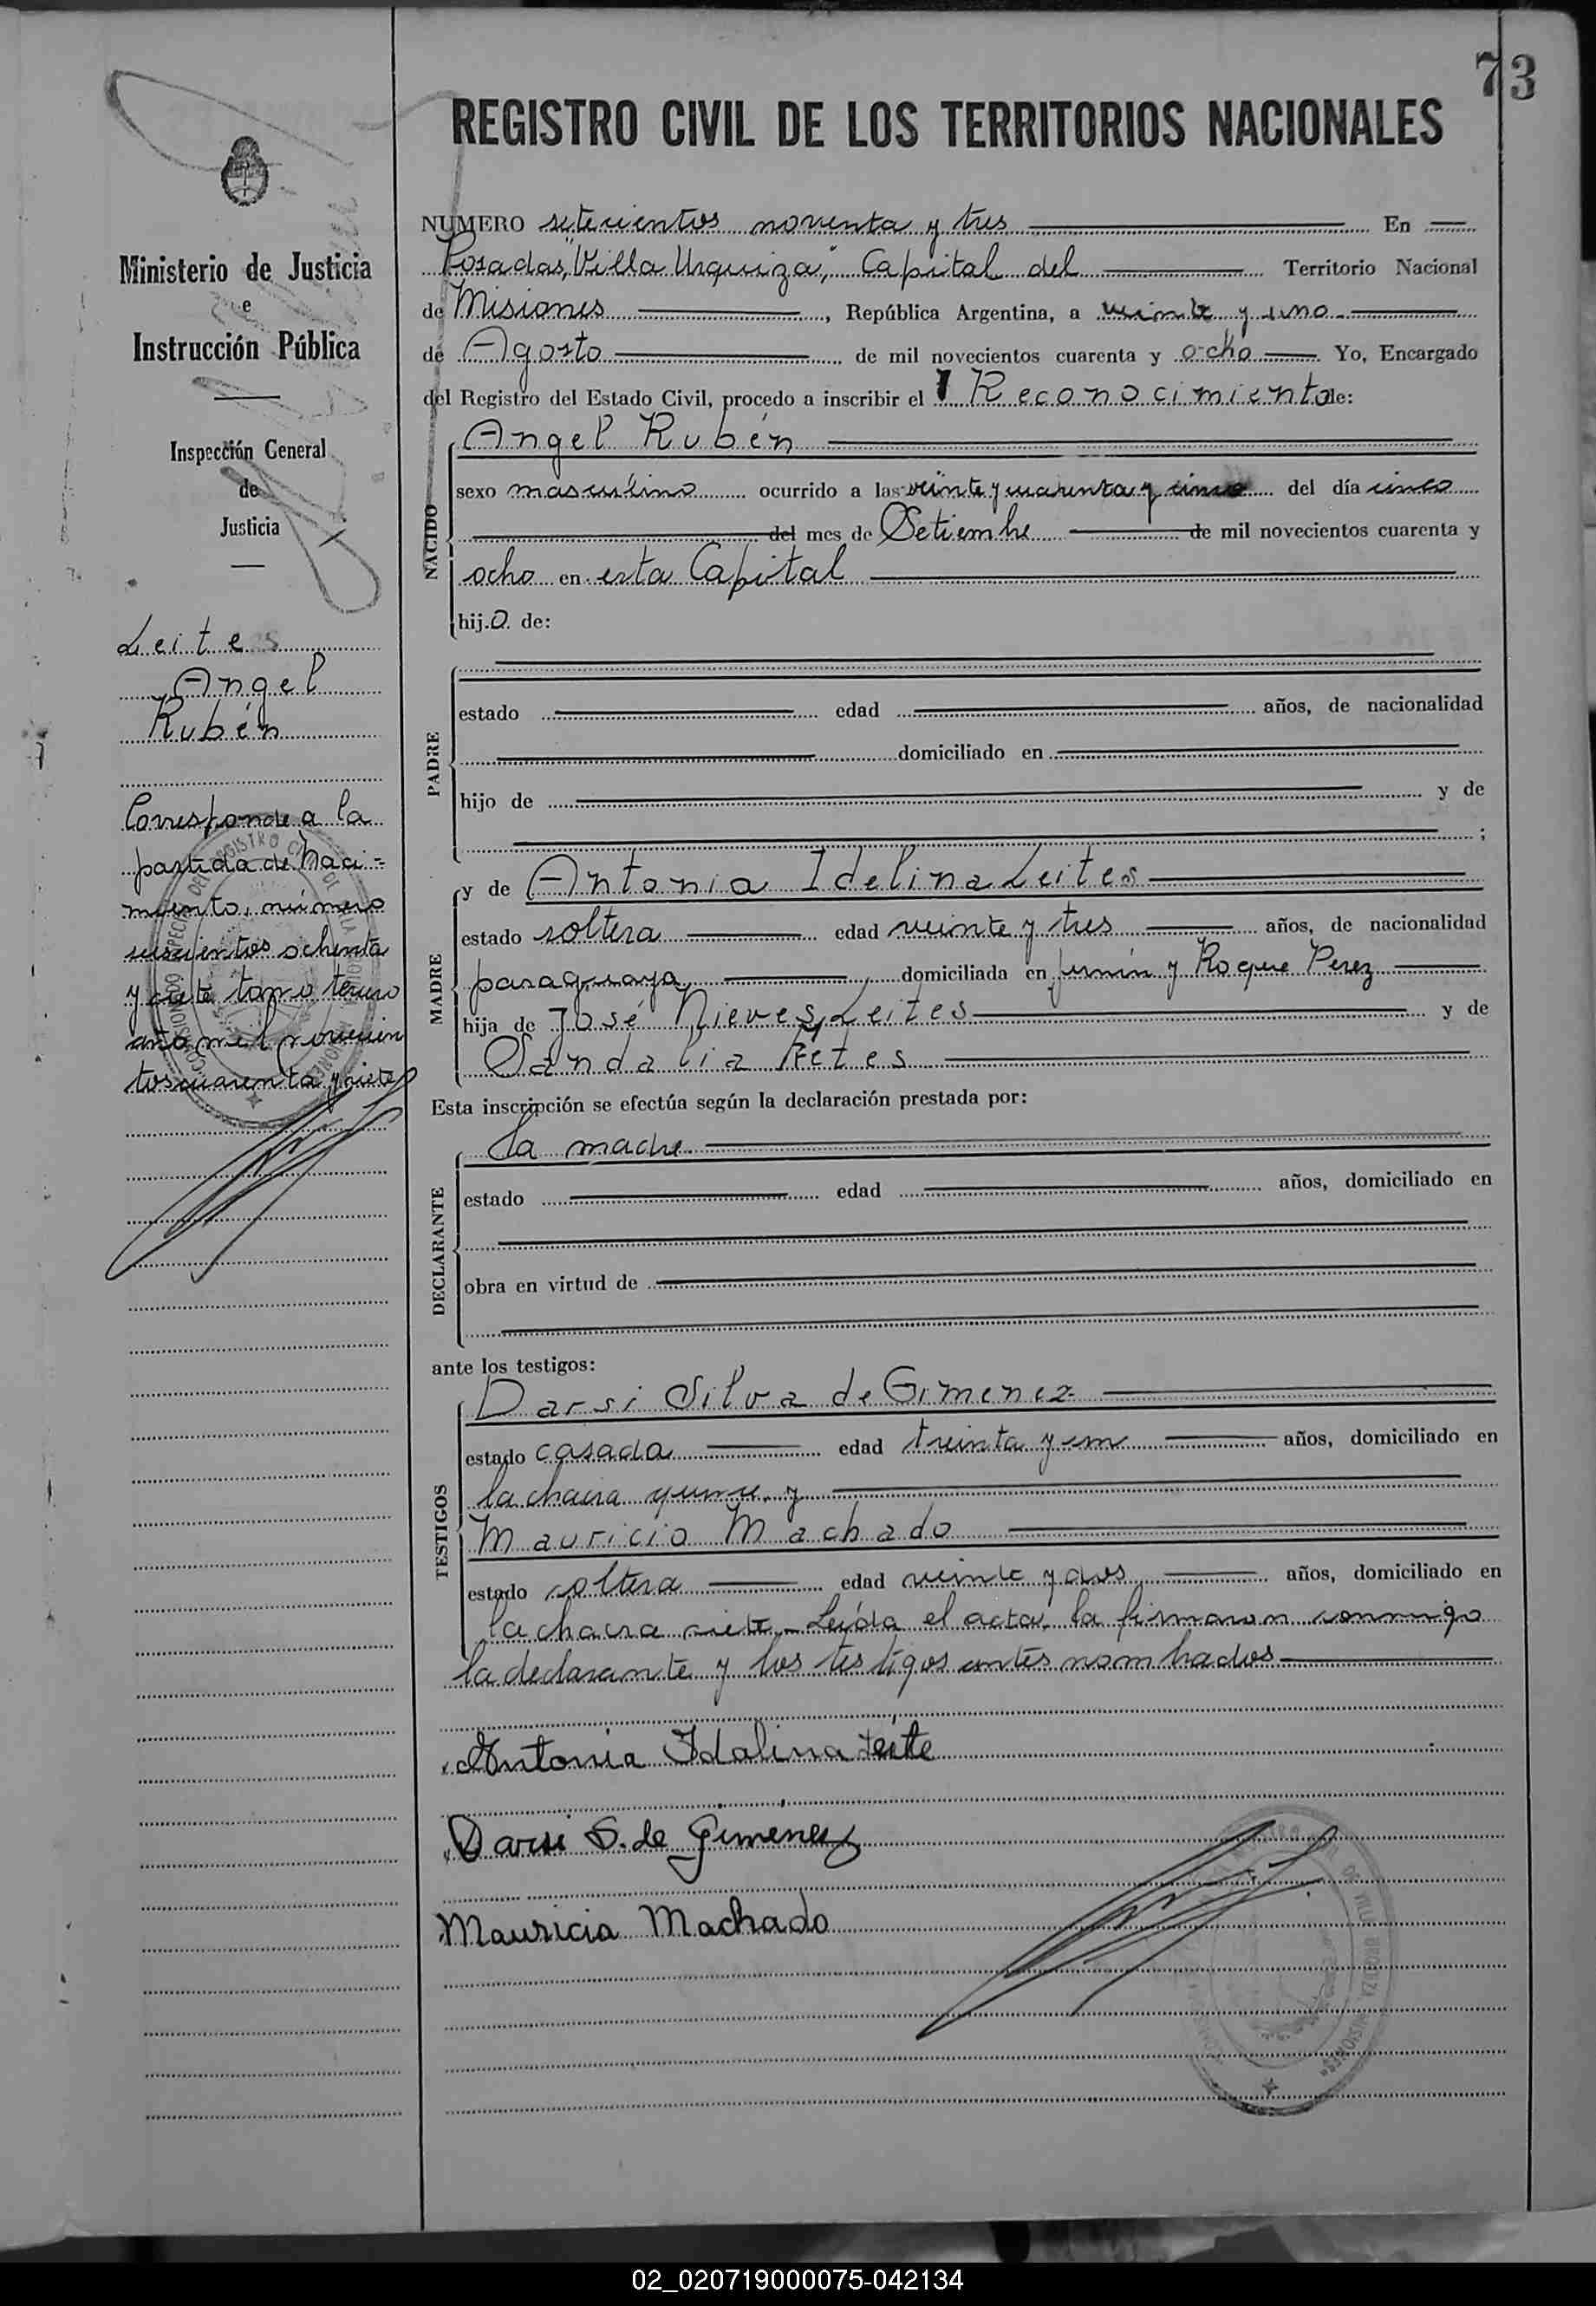 73
REGISTRO CIVIL DE LOS TERRITORIOS NACIONALES
Ministerio de Justicia
e
Instrucción Pública
Inspección General
de
Justicia
Leites
Angel
Rubén
Corresponde a la
partida de Naci=
miento, número
seiscientos ochenta
y siete tomo tercero
año mil novecien
tos cuarenta y siete
NUMERO setecientos noventa y tres En
Posadas, "Villa Urquiza", Capital del Territorio Nacional
de Misiones, República Argentina, a veinte y uno
de Agosto de mil novecientos cuarenta y ocho Yo, Encargado
del Registro del Estado Civil, procedo a inscribir el Reconocimiento de:
NACIDO
Angel Rubén
sexo masculino ocurrido a las veinte y cuarenta y cinco del día cinco
del mes de Setiembre de mil novecientos cuarenta y
ocho en esta Capital
hijo de:
PADRE
estado edad años, de nacionalidad
domiciliado en
hijo de y de
;
MADRE
y de Antonia Idelina Leites
estado soltera edad veinte y tres años, de nacionalidad
paraguaya domiciliada en fermín y Roque Perez
hija de José Nieves Leites y de
Sandalia
Esta inscripción se efectúa según la declaración prestada por:
DECLARANTE
la madre
estado edad años, domiciliado en
obra en virtud de
ante los testigos:
TESTIGOS
Darsi Silva de Gimenez
estado casada edad treinta y un años, domiciliado en
la chacra quince y
Mauricio Machado
estado soltera edad veinte y dos años, domiciliado en
la chacra siete. Leída el acta, la firmaron conmigo
la declarante y los testigos antes nombrados
Antonia Idalina Leite
Darsi S. de Gimenez
Mauricia Machado
02_020719000075-042134